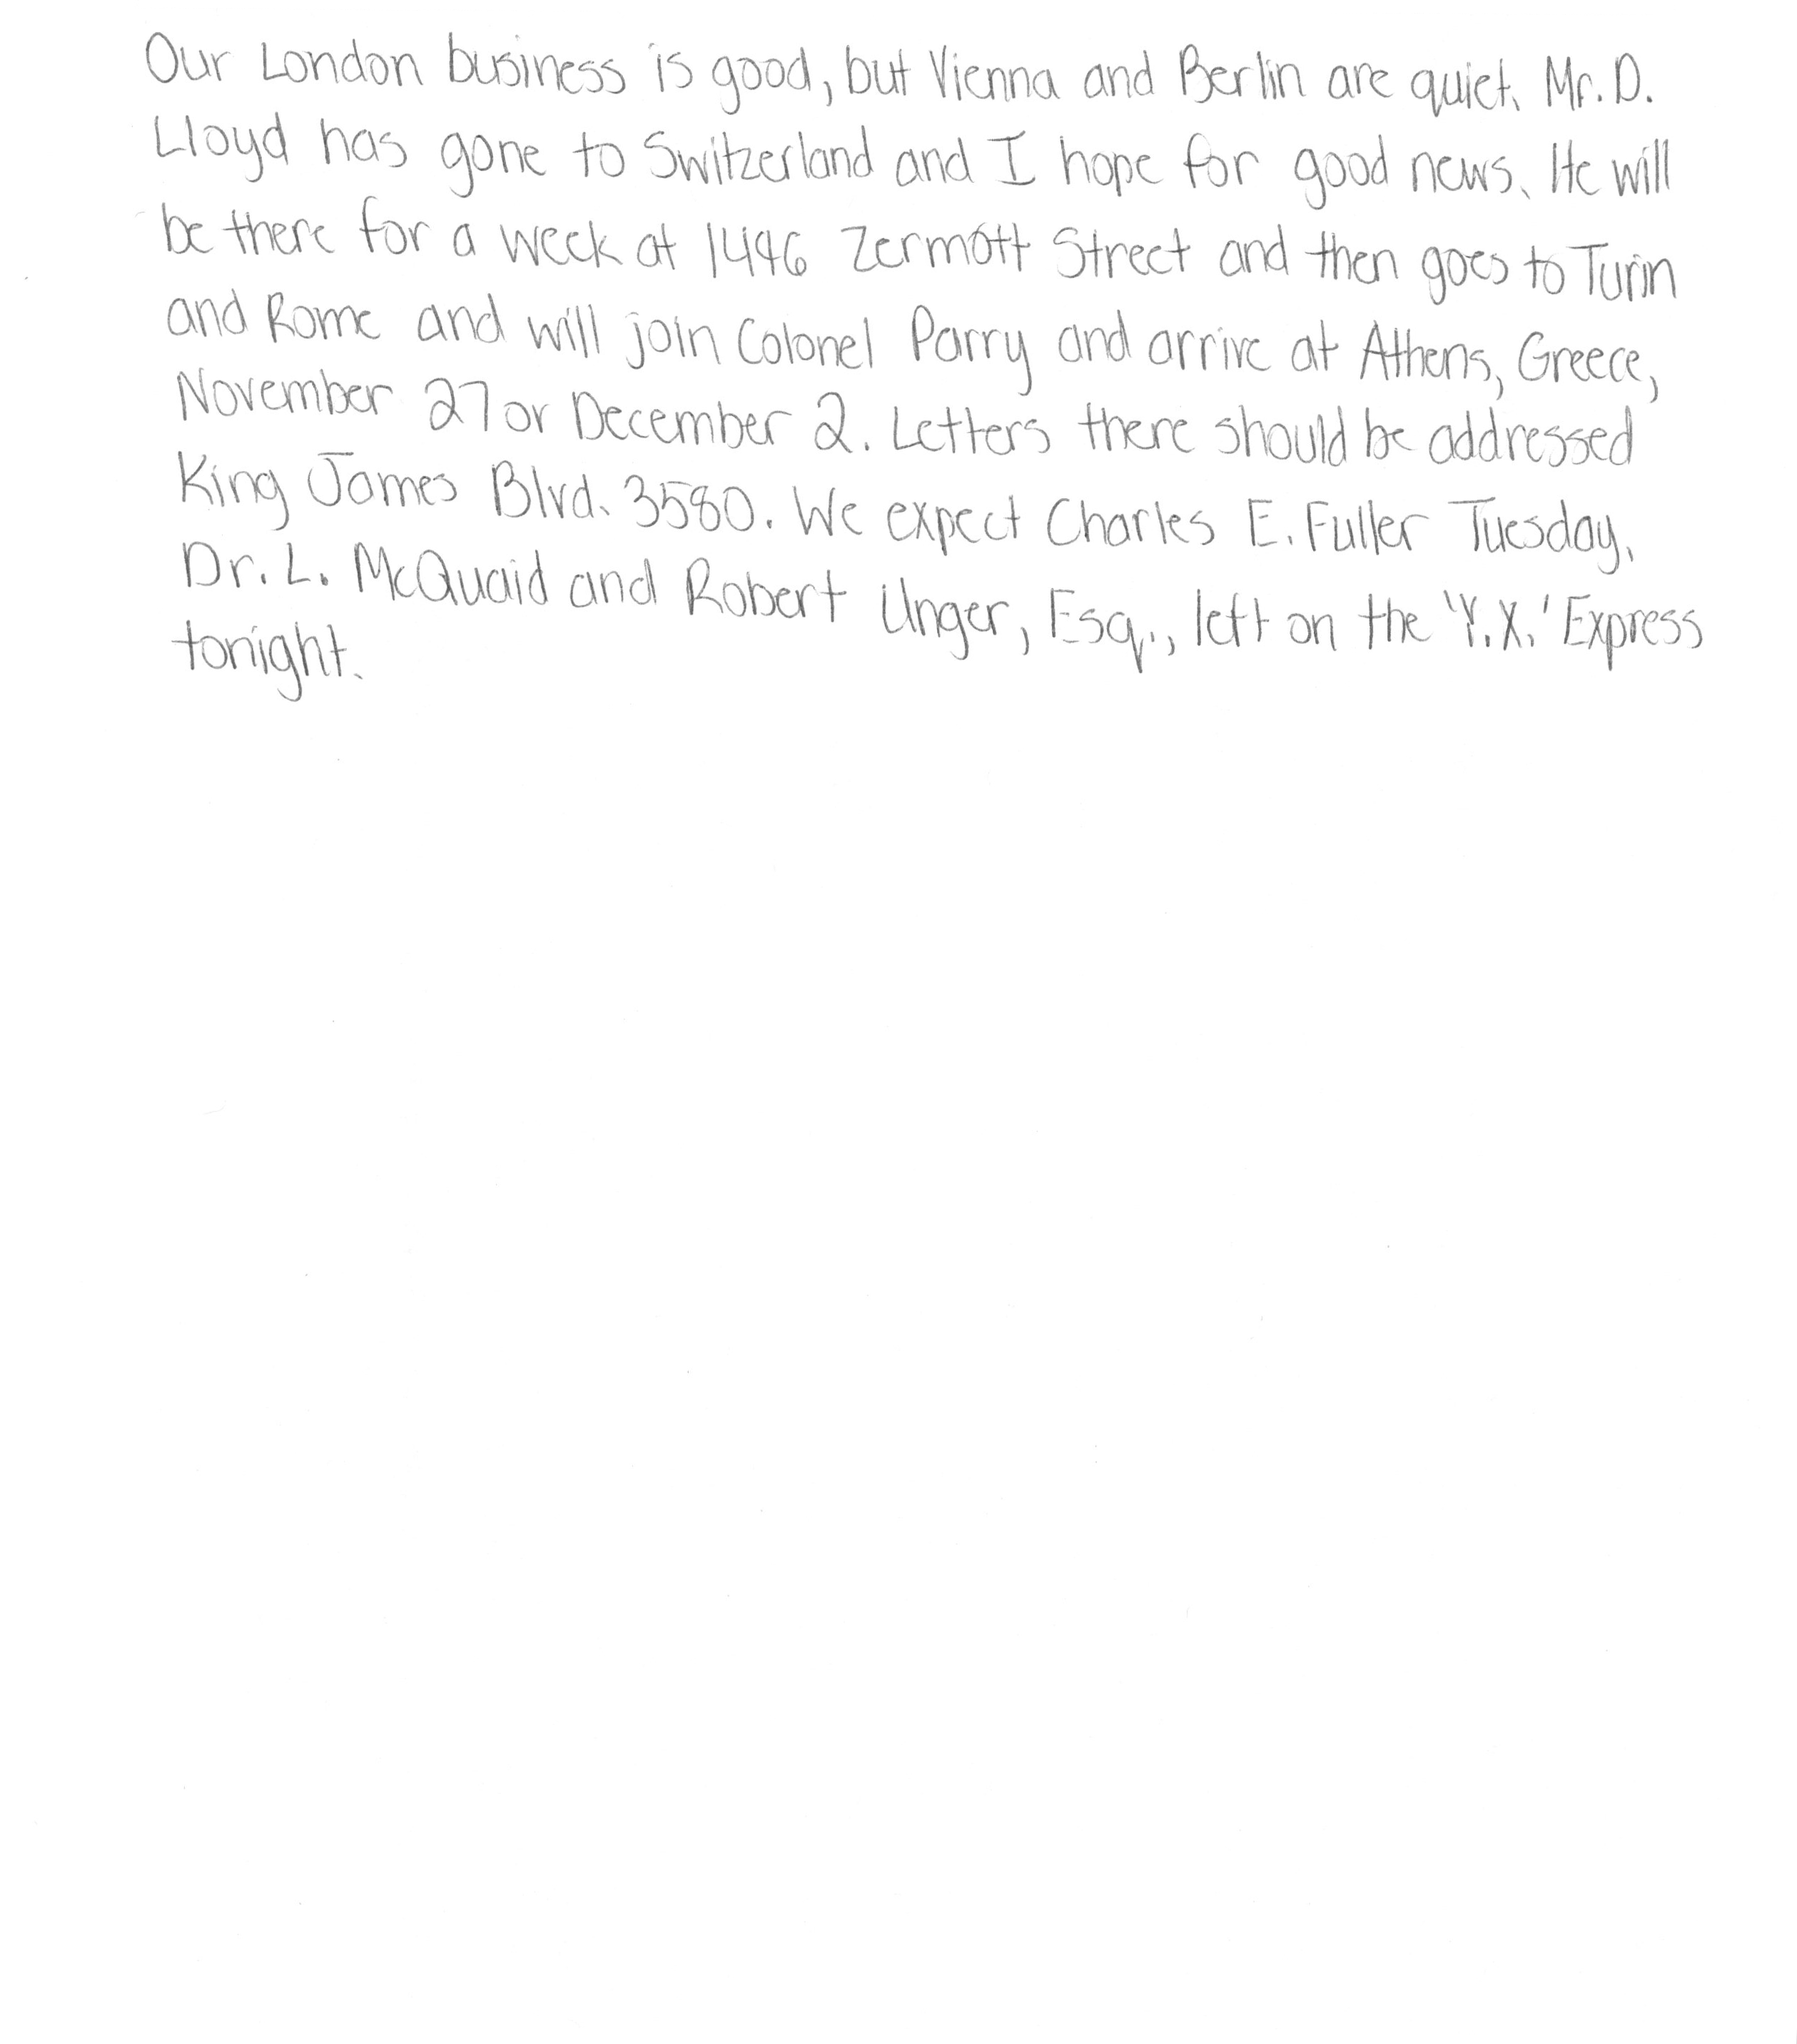 Our London business is good, but Vienna and Berlin are quiet. Mr. D.
Lloyd has gone to Switzerland and I hope for good news. He will
be there for a week at 1446 Zermott Street and then goes to Turin
and Rome and will join Colonel Parry and arrive at Athens, Greece,
November 27 or December 2. Letters there should be addressed
King James Blvd. 3580. We expect Charles E. Fuller Tuesday.
Dr. L. McQuaid and Robert Unger, Esq., left on the 'Y.X.' Express
tonight.